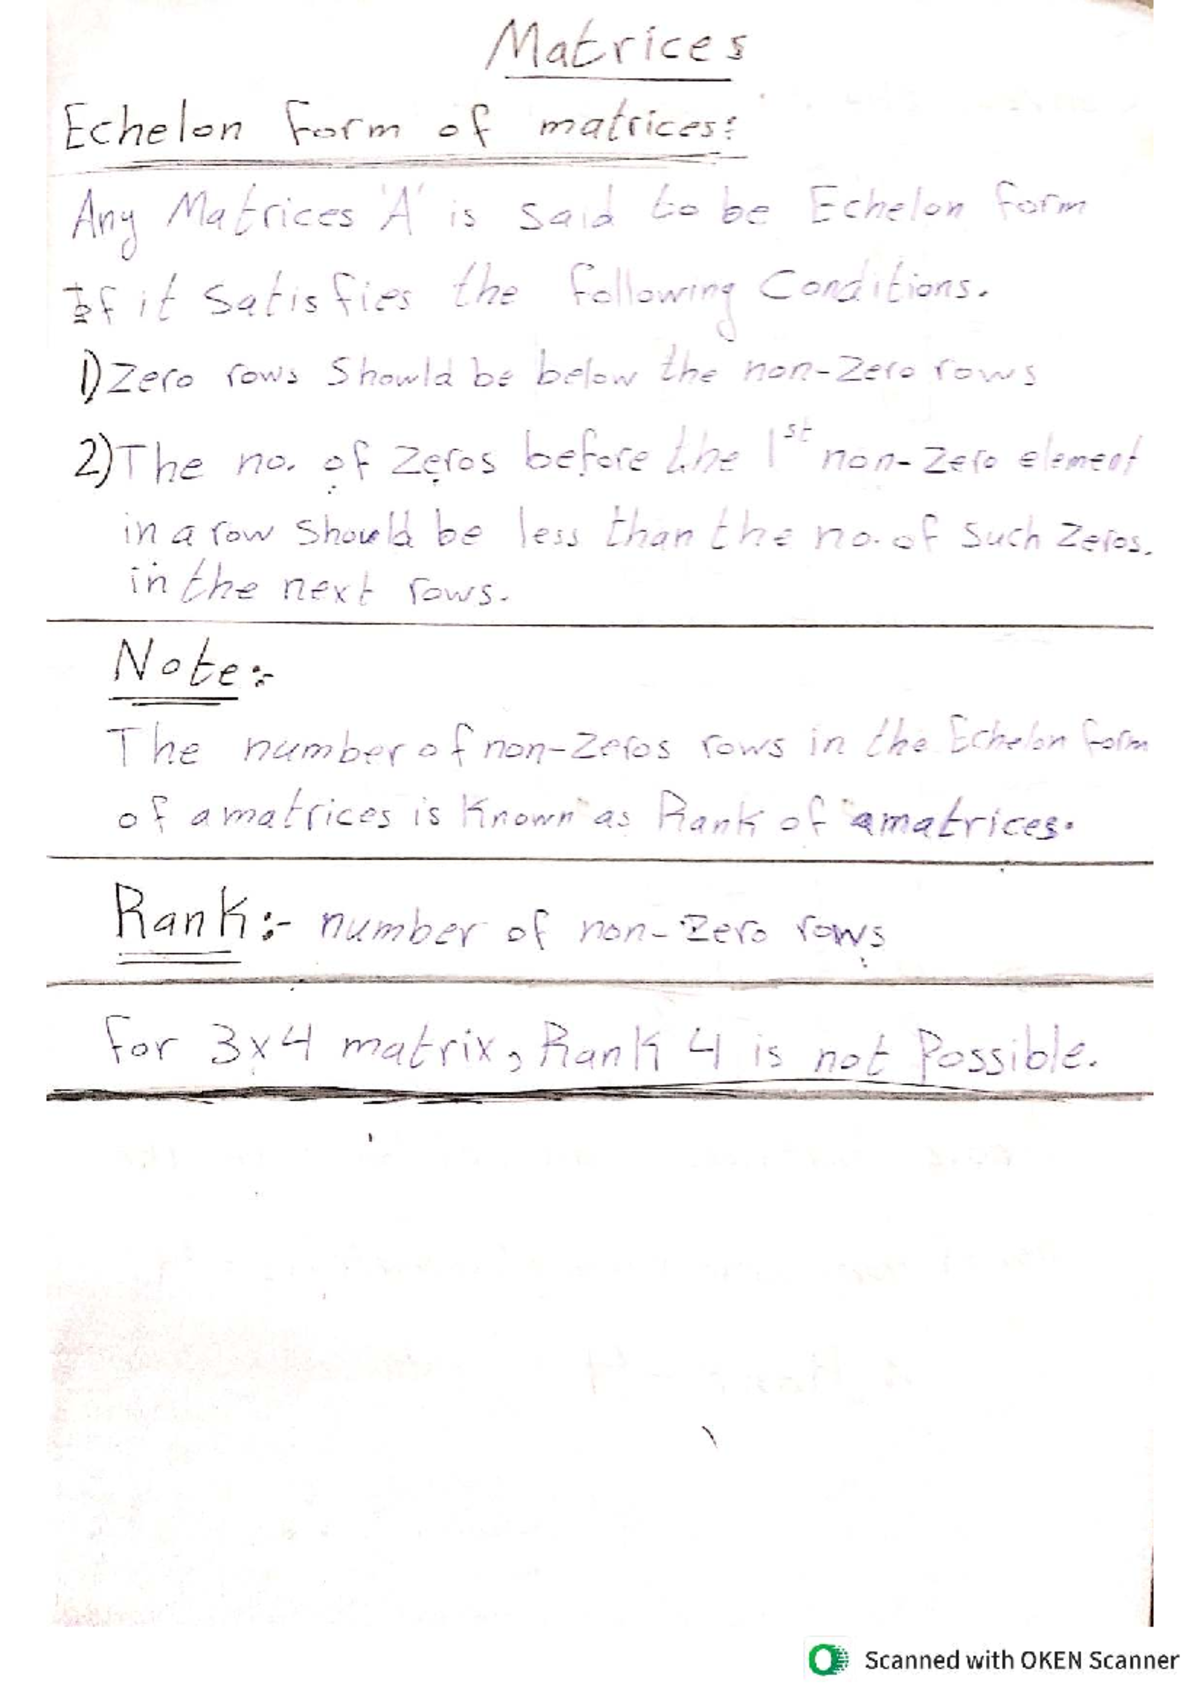 Matrices
Echelon form of matrices:
Any Matrices 'A' is said to be Echelon form
If it Satisfies the following Conditions.
1) Zero rows Should be below the non-Zero rows
2) The no. of Zeros before the 1st non-Zero element
in a row Should be less than the no. of Such Zeros.
in the next rows.
Note:-
The number of non-Zeros rows in the Echelon form
of a matrices is Known as Rank of a matrices.
Rank:- number of non-Zero rows
for 3x4 matrix, Rank 4 is not Possible.
Scanned with OKEN Scanner